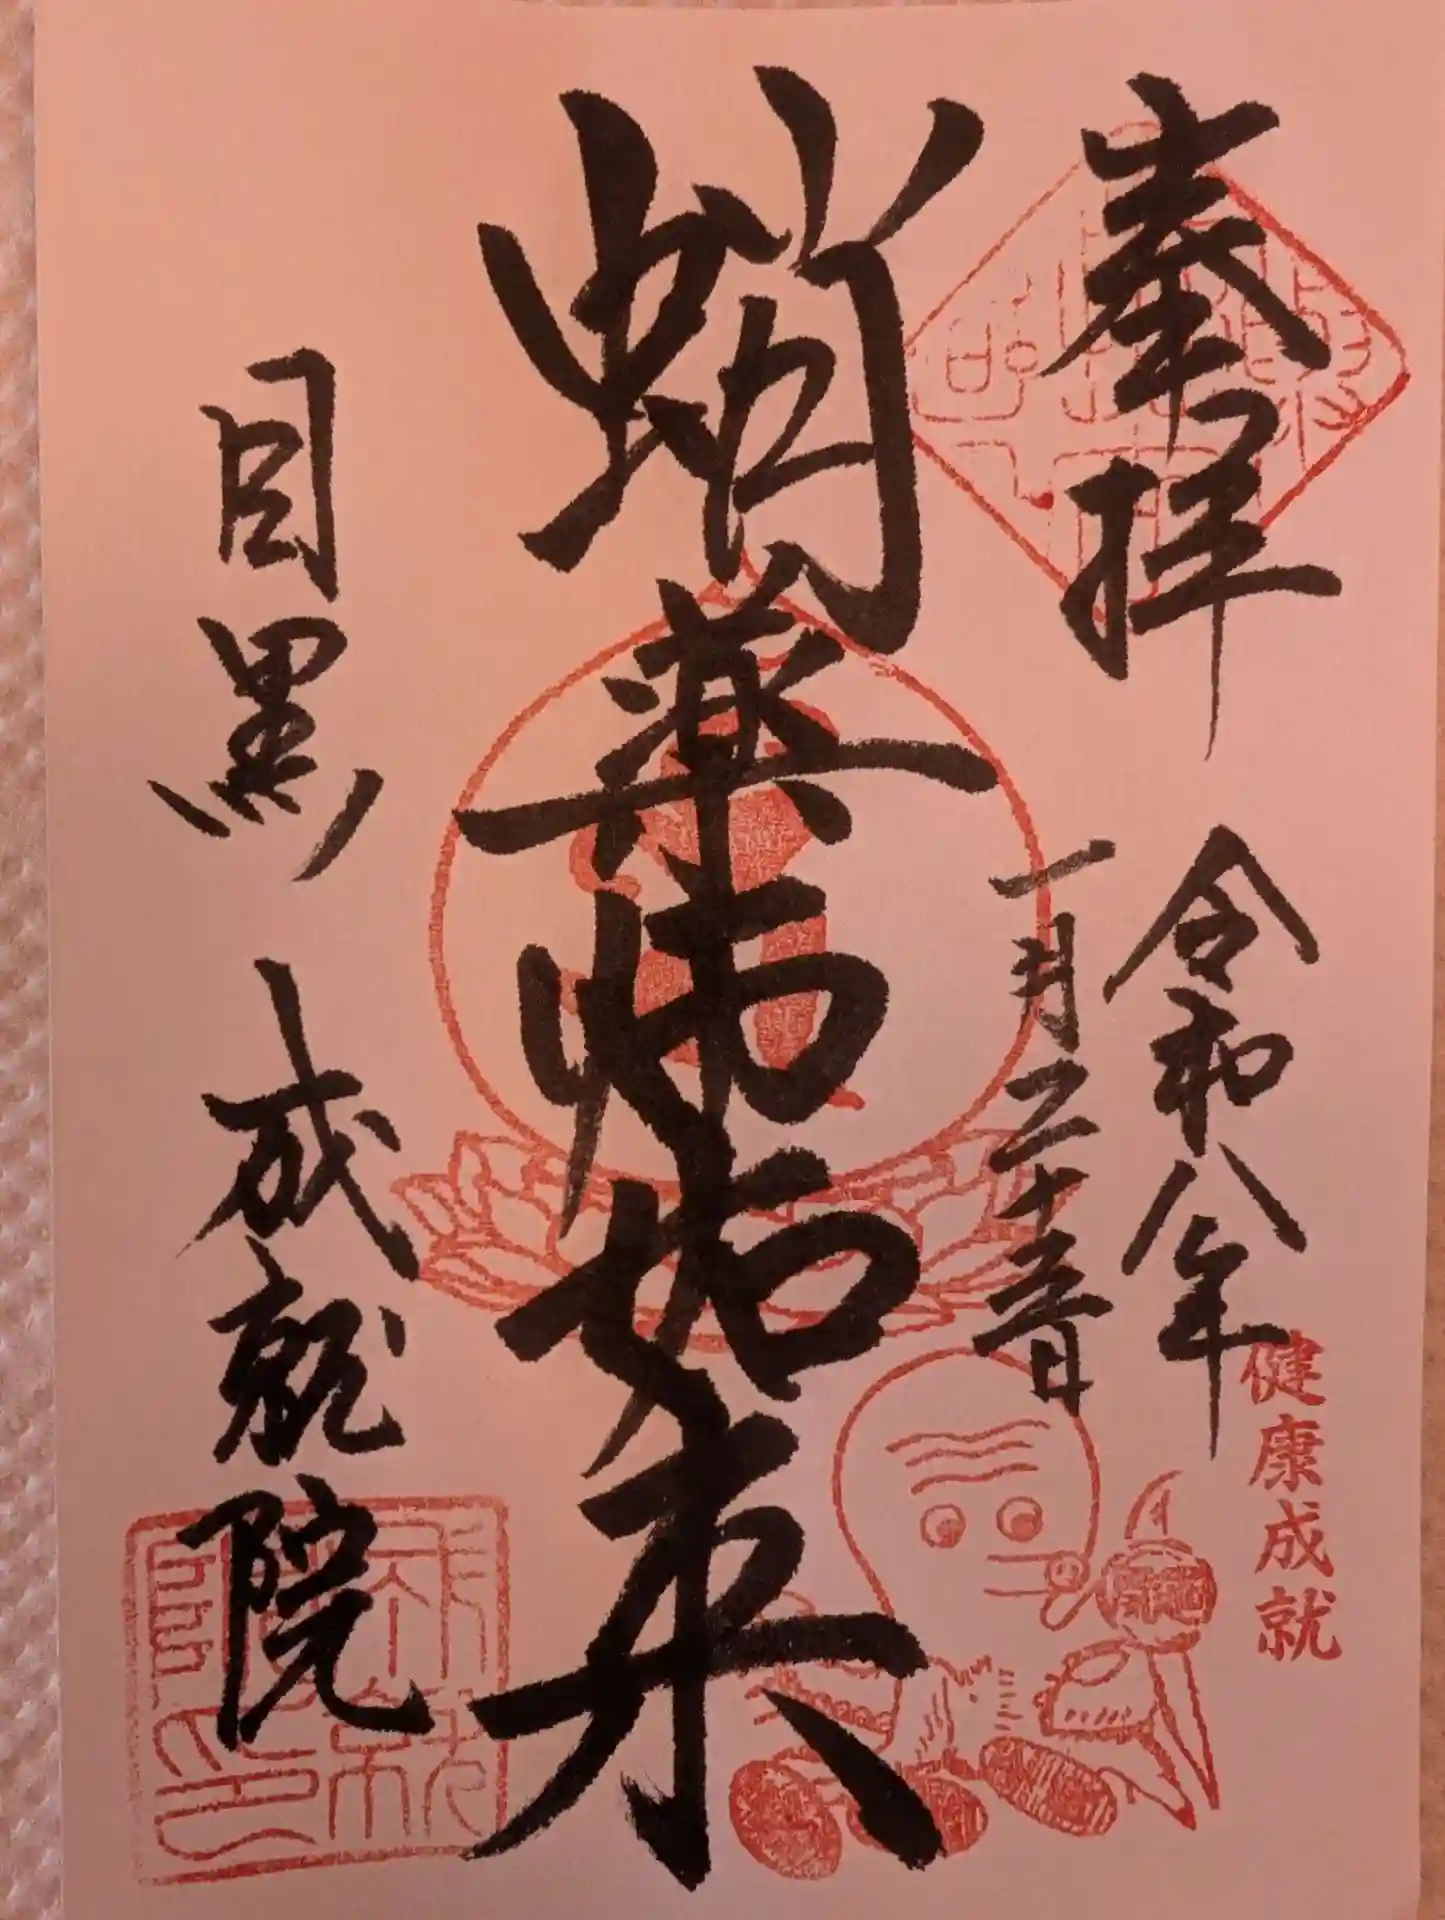 奉拝
令和八年
一月二十五日
健康成就
蛸薬師如来
目黒 成就院